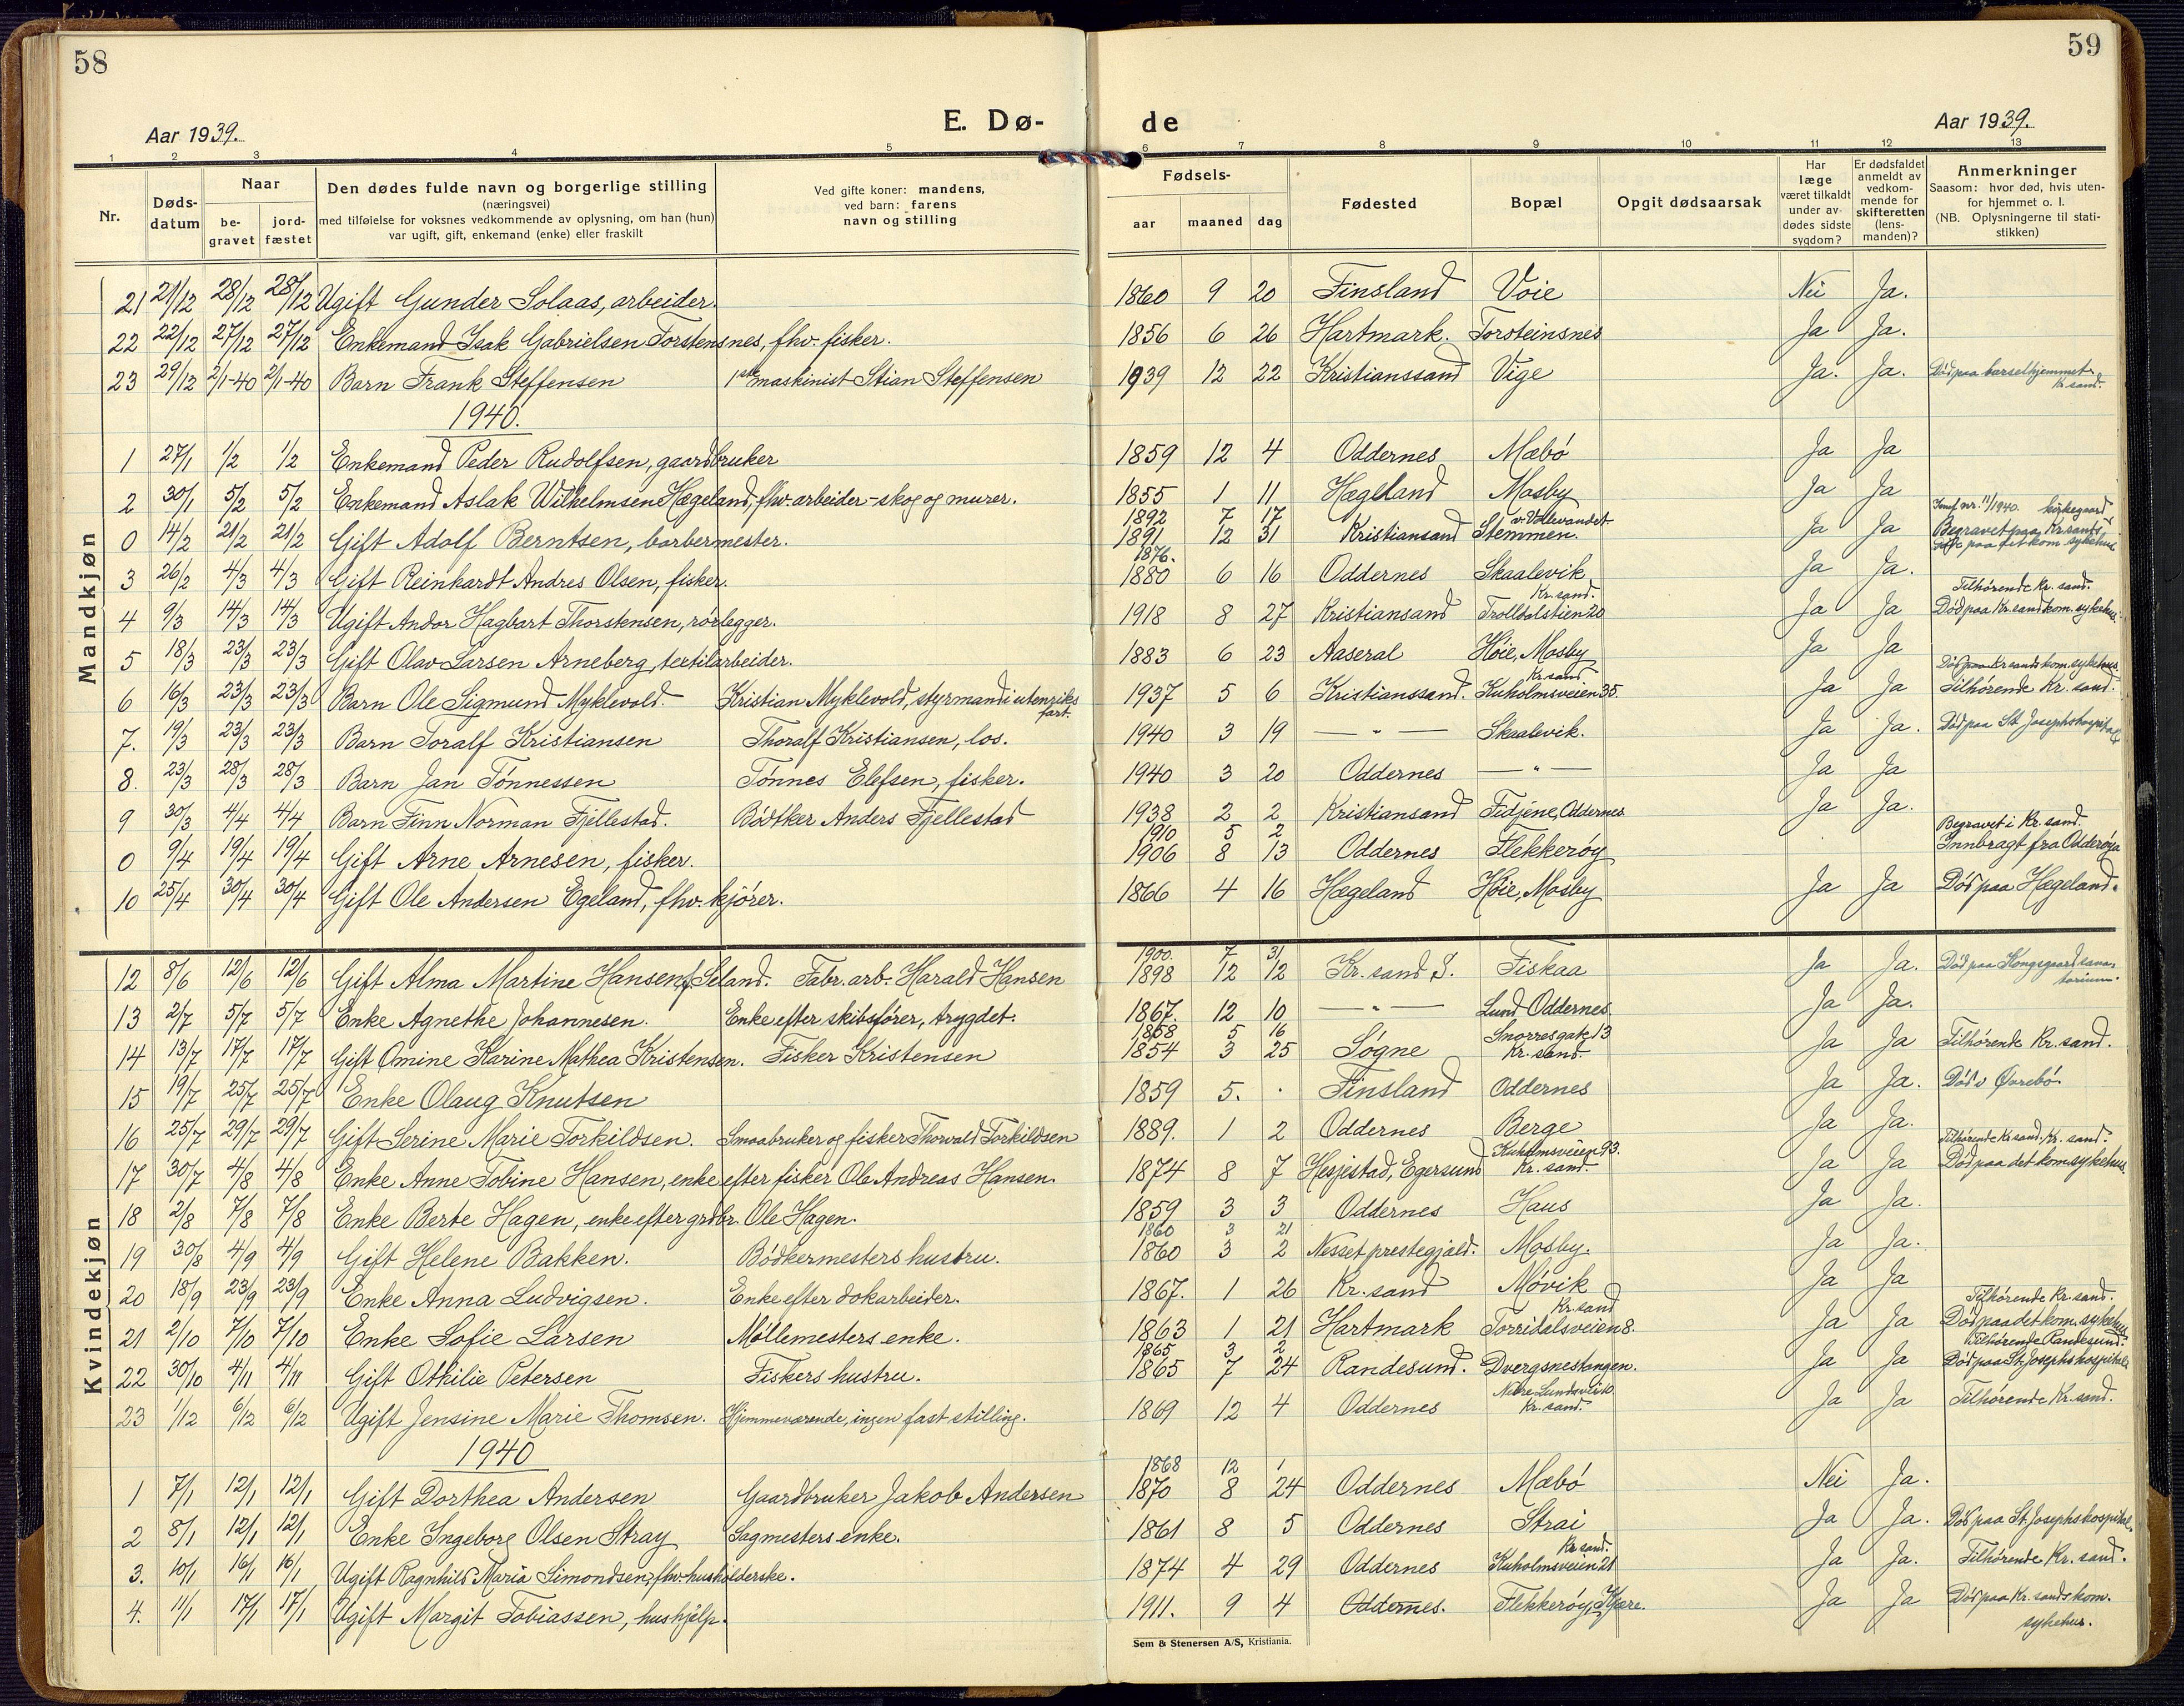 58
59
Aar 1939.
E. Dø-
de
Aar 1939.
1 2 3 4 5 6 7 8 9 10 11 12 13
Nr.
Døds-
datum
Naar
be-
gravet
jord-
fæstet
Den dødes fulde navn og borgerlige stilling
(næringsvei)
med tilføielse for voksnes vedkommende av oplysning, om han (hun)
var ugift, gift, enkemand (enke) eller fraskilt
Ved gifte koner: mandens,
ved barn: farens
navn og stilling
Fødsels-
aar maaned dag
Fødested
Bopæl
Opgit dødsaarsak
Har
læge
været tilkaldt
under av-
dødes sidste
sygdom?
Er dødsfaldet
anmeldt av
vedkom-
mende for
skifteretten
(lens-
manden)?
Anmerkninger
Saasom: hvor død, hvis uten-
for hjemmet o. l.
(NB. Oplysningerne til stati-
stikken)
Mandkjøn
21 21/12 28/12 28/12 Ugift Gunder Solaas, arbeider. 1860 9 20 Finsland Voie Nei Ja.
22 22/12 27/12 27/12 Enkemand Isak Gabrielsen Torstensnes, fhv. fisker. 1856 6 26 Hartmark. Torsteinsnes Ja Ja.
23 29/12 2/1-40 2/1-40 Barn Frank Steffensen 1ste maskinist Stian Steffensen 1939 12 22 Kristianssand Vige Ja. Ja. Død paa barselhjemmet Kr.sand.
1940.
1 27/1 1/2 1/2 Enkemand Peder Rudolfsen, gaardbruker 1859 12 4 Oddernes Mæbø Ja Ja
2 30/1 5/2 5/2 Enkemand Aslak Wilhelmsen Hægeland, fhv. arbeider - skog og murer. 1855 1 11 Hægeland Mosby Ja Ja
1892 7 17 v. Vollevandet Jmf. nr. 11/1940. kirkegaard
0 14/2 21/2 21/2 Gift Adolf Berntsen, barbermester. 1891 12 31 Kristiansand Stemmen. Ja Ja Begravet paa Kr.sands
1876. paa det kom. sykehus
3 26/2 4/3 4/3 Gift Reinhardt Andres Olsen, fisker. 1880 6 16 Oddernes Skaalevik Ja Ja.
Kr.sand. Tilhørende Kr.sand.
4 9/3 14/3 14/3 Ugift Andor Hagbart Thorstensen, rørlegger. 1918 8 27 Kristiansand Trolldalstien 20 Ja Ja Død paa Kr.sand kom. sykehus.
5 18/3 23/3 23/3 Gift Olav Larsen Arneberg, textilarbeider. 1883 6 23 Aaseral Høie, Mosby Ja Ja
Kr.sand Død paa Kr.sands kom. sykehus.
6 16/3 23/3 23/3 Barn Ole Sigmund Myklevold. Kristian Myklevold, styrmand i utenriksfart. 1937 5 6 Kristianssand. Kuholmsveien 35. Ja Ja Tilhørende Kr.sand.
7. 19/3 23/3 23/3 Barn Toralf Kristiansen Thoralf Kristiansen, los. 1940 3 19 — " — Skaalevik. Ja Ja. Død paa St. Josephshospital
8. 23/3 28/3 28/3 Barn Jan Tønnessen Tønnes Elefsen, fisker. 1940 3 20 Oddernes — " — Ja Ja
9 30/3 4/4 4/4 Barn Finn Norman Fjellestad. Bødtker Anders Fjellestad 1938 2 2 Kristiansand Fidjene, Oddernes Ja Ja.
1910 5 2 Begravet i Kr.sand.
0 9/4 19/4 19/4 Gift Arne Arnesen, fisker. 1906 8 13 Oddernes Flekkerøy Innbragt fra Odderøya
10 25/4 30/4 30/4 Gift Ole Andersen Egeland, fhv. kjører. 1866 4 16 Hægeland Høie, Mosby Ja Ja Død paa Hægeland.
Kvindekjøn
1900. 7 31
12 8/6 12/6 12/6 Gift Alma Martine Hansen f. Seland. Fabr. arb. Harald Hansen 1898 12 12 Kr.sand S. Fiskaa Ja Ja. Død paa Kongsgaard sanatorium.
13 2/7 5/7 5/7 Enke Agnethe Johannesen. Enke efter skibsfører, trygdet. 1867. 12 10 — " — Lund Oddernes. Ja Ja.
1858 5 16 Snorresgate 13
14 13/7 17/7 17/7 Gift Omine Karine Mathea Kristensen. Fisker Kristensen 1854 3 25 Søgne Kr.sand. Ja Ja Tilhørende Kr.sand.
15 19/7 25/7 25/7 Enke Olaug Knutsen 1859 5. . Finsland Oddernes Ja Ja. Død i Øvrebø.
16 25/7 29/7 29/7 Gift Serine Marie Torkildsen. Smaabruker og fisker Thorvald Torkildsen 1889. 1 2 Oddernes Berge Ja Ja.
Kuholmsveien 93. Tilhørende Kr.sand. Kr.sand.
17 30/7 4/8 4/8 Enke Anne Tobine Hansen, enke efter fisker Ole Andreas Hansen. 1874 8 7 Hesjestad, Egersund Kr.sand. Ja Ja Død paa det kom. sykehus
18 2/8 7/8 7/8 Enke Berte Hagen, enke efter grdbr. Ole Hagen. 1859 3 3 Oddernes Haus Ja Ja.
1860 3 21
19 30/8 4/9 4/9 Gift Helene Bakken. Bødkermesters hustru. 1860 3 2 Nesset prestegjeld. Mosby. Ja Ja.
20 18/9 23/9 23/9 Enke Anna Ludvigsen. Enke efter dokarbeider. 1867. 1 26 Kr.sand Møvik Ja Ja
Kr.sand Tilhørende Kr.sand.
21 2/10 7/10 7/10 Enke Sofie Larsen Møllemesters enke. 1863 1 21 Hartmark Torridalsveien 8. Ja Ja Død paa det kom. sykehus
1865 3 2 Tilhørende Randesund.
22 30/10 4/11 4/11 Gift Othilie Petersen Fiskers hustru. 1865 7 24 Randesund. Dvergsnestangen. Ja Ja Død paa St. Josephshospital
Nedre Lundsvei
23 1/12 6/12 6/12 Ugift Jensine Marie Thomsen. Hjemmeværende, ingen fast stilling. 1869 12 4 Oddernes Kr.sand. Ja Ja Tilhørende Kr.sand.
1940
1868 12 1
1 7/1 12/1 12/1 Gift Dorthea Andersen Gaardbruker Jakob Andersen 1870 8 24 Oddernes Mæbø Nei Ja.
2 8/1 12/1 12/1 Enke Ingeborg Olsen Stray Sagmesters enke. 1861 8 5 Oddernes Strai Ja Ja. Død paa St. Josephshospital.
Kr.sand.
3. 10/1 16/1 16/1 Ugift Ragnhild Maria Simondsen, fhv. husholderske. 1874 4 29 Oddernes Kuholmsveien 21 Ja Ja. Tilhørende Kr.sand.
4. 11/1 17/1 17/1 Ugift Margit Tobiassen, hushjelp. 1911. 9 4 Oddernes. Flekkerøy, Kjære. Ja Ja Død paa Kr.sands kom. sykehus.
Sem & Stenersen A/S, Kristiania.